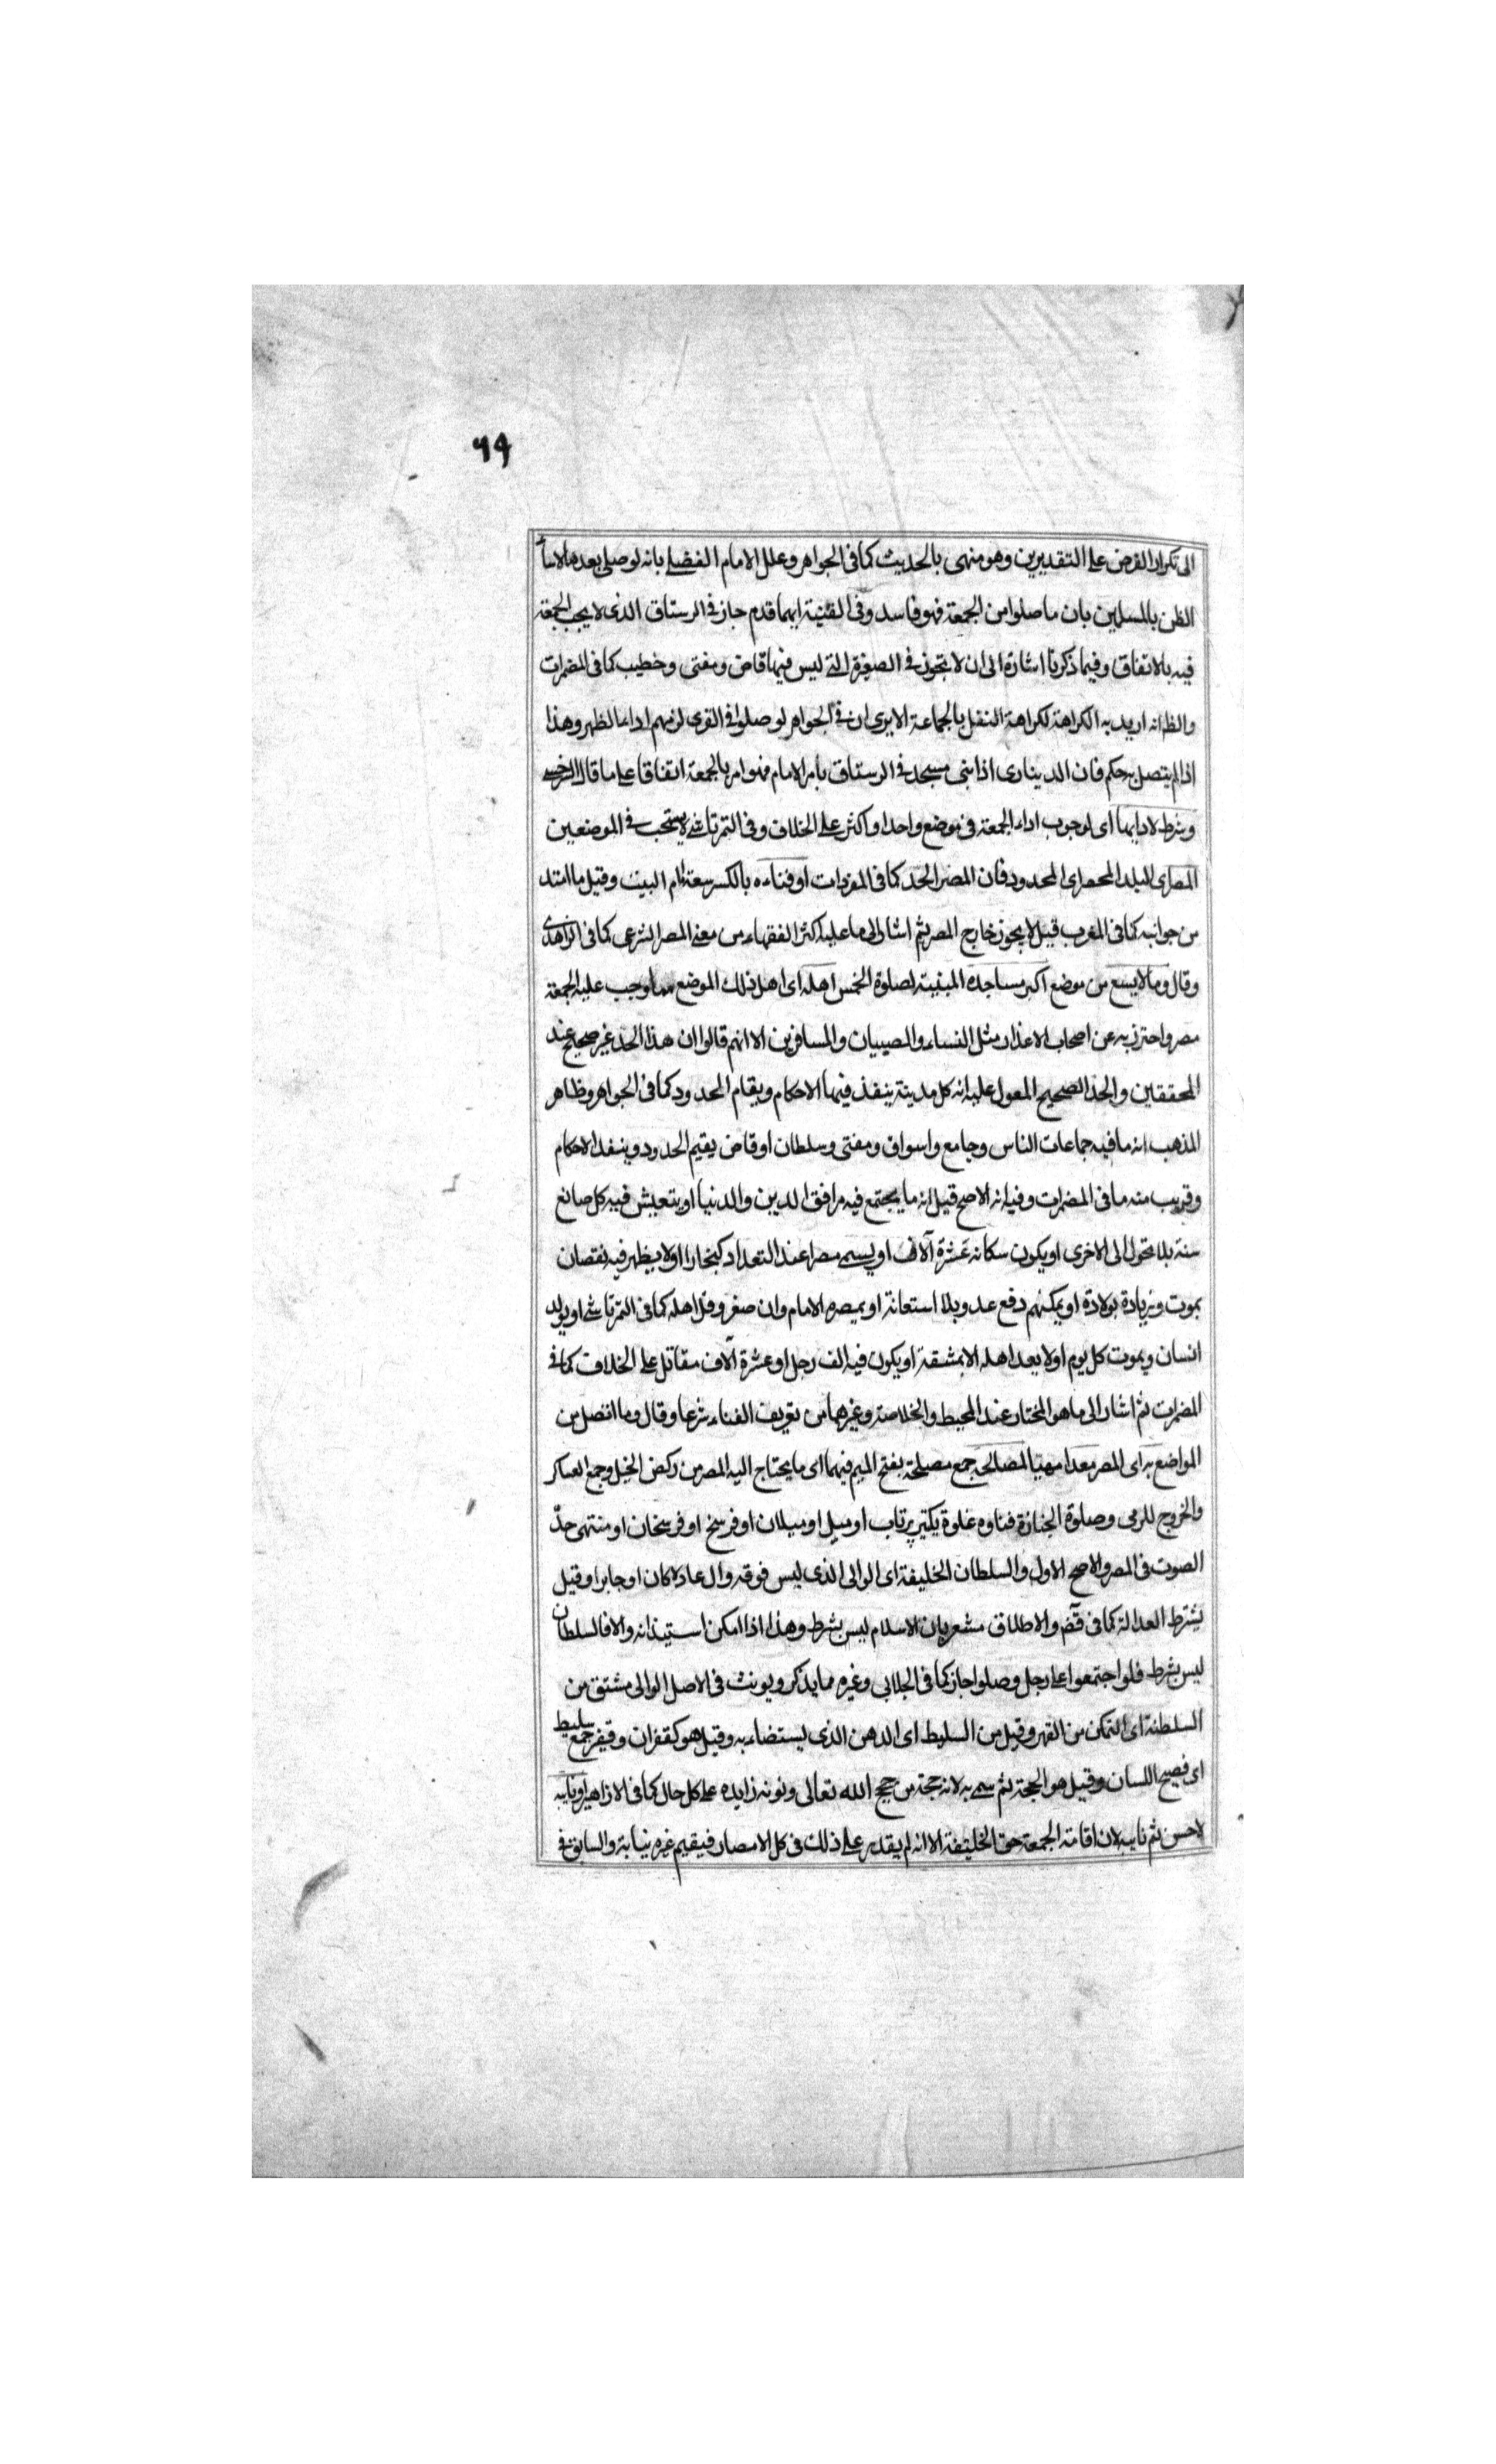 ٩٩
الى تكرار الفرض على التقديرين وهو منهى بالحديث كما فى الجواهر وعلل الامام الفضلى بانه لو صلى بعدها لاسأ
الظن بالمسلمين بان ما صلوا من الجمعة فهو فاسد وفى القنية ايهما قدم جاز فى الرستاق الذى لا يجب الجمعة
فيه بالاتفاق وفيما ذكرنا اشارة الى ان لا تجوز فى الصغيرة التى ليس فيها قاض ومفتى وخطيب كما فى المضمرات
والظ انه اريد به الكراهة لكراهة النفل بالجماعة الا يرى ان فى الجواهر لو صلوا فى القرى لزمهم اداء الظهر وهذا
اذا لم يتصل به حكم فان الدينارى اذا بنى مسجد فى الرستاق بامر الامام فهو امر بالجمعة اتفاقا على ما قال السرخسى
وشرط لادايها اى لوجوب اداء الجمعة فى موضع واحد او اكثر على الخلاف وفى التمرتاشى لا يستحب فى الموضعين
المصر اى البلد المحصر اى المحدود فان المصر الحد كما فى المفردات او فناءه بالكسر سعة امام البيت وقيل ما امتد
من جوانبه كما فى المغرب قيل لا يجوز خارج المصر ثم اشار الى ما عليه اكثر الفقهاء من معنى المصر الشرعى كما فى الزاهدى
وقال وما لا يسع من موضع اكبر مساجده المبنية لصلوة الخمس اهله اى اهل ذلك الموضع مما وجب عليه الجمعة
مصر واحترز به عن اصحاب الاعذار مثل النساء والصبيان والمسافرين الا انهم قالوا ان هذا الحد غير صحيح عند
المحققين والحد الصحيح المعول عليه انه كل مدينة ينفذ فيها الاحكام ويقام الحدود كما فى الجواهر وظاهر
المذهب انه ما فيه جماعات الناس وجامع واسواق ومفتى وسلطان او قاض يقيم الحدود وينفذ الاحكام
وقريب منه ما فى المضمرات وفيه انه الاصح قيل انه ما يجتمع فيه مرافق الدين والدنيا او يتعيش فيه كل صانع
سنة بلا تحول الى الاخرى او يكون سكانه عشرة آلاف او يسمى مصرا عند التعداد كبخارا او لا يظهر فيه نقصان
بموت وزيادة بولادة او يمكنهم دفع عدو بلا استعانة او يمصره الامام وان صغر وقل اهله كما فى التمرتاشى او يولد
انسان ويموت كل يوم او لا يعد اهله الا بمشقة او يكون فيه الف رجل او عشرة آلاف مقاتل على الخلاف كما فى
المضمرات ثم اشار الى ما هو المختار عند المحيط والخلاصة وغيرهما من تعريف الفناء شرعا وقال وما اتصل من
المواضع به اى المصر معدا مهيّا لمصالحه جمع مصلحة بفتح الميم فيهما اى ما يحتاج اليه المصر من ركض الخيل وجمع العساكر
والخروج للرمى وصلوة الجنازة فناوه غلوة يكتير پرتاب او ميل او ميلان او فرسخ او فرسخان او منتهى حدّ
الصوت فى المصر والاصح الاول والسلطان الخليفة اى الوالى الذى ليس فوقه وال عادلا كان او جايرا وقيل
يشترط العدالة كما فى قآض والاطلاق مشعر بان الاسلام ليس بشرط وهذا اذا امكن استيذانه والا فالسلطان
ليس بشرط فلو اجتمعوا على رجل وصلوا جاز كما فى الجلابى وغيره مما يذكر ويونث فى الاصل الوالى مشتق من
السلطنة اى التمكن من القهر وقيل من السليط اى الدهن الذى يستضاء به وقيل هو كقفزان وقفيز جمع سليط
اى فصيح اللسان وقيل هو الحجة ثم سمى به لانه حجة من حجج الله تعالى ونونه زايده على كل حال كما فى الازاهير او نايبه
لاحسن ثم نايبه لان اقامة الجمعة حق الخليفة الا انه لم يقدر على ذلك فى كل الامصار فيقيم غيره نيابة والسابق فى